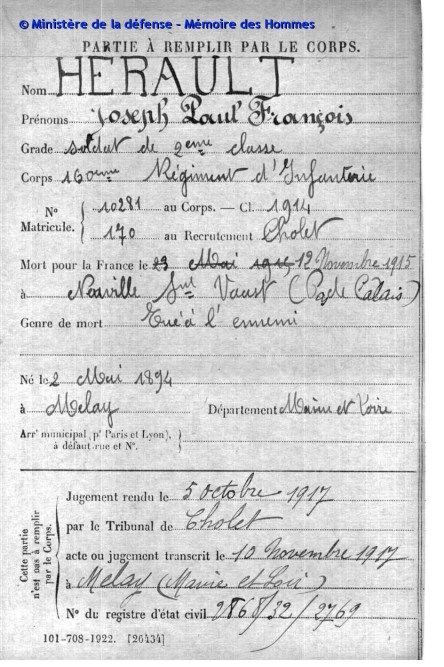 © Ministère de la défense - Mémoire des Hommes
PARTIE À REMPLIR PAR LE CORPS.
Nom HERAULT
Prénoms Joseph Paul François
Grade soldat de 2eme classe
Corps 160eme Régiment d'Infanterie
N° Matricule. { 10281 au Corps. — Cl. 1914
170 au Recrutement Cholet
Mort pour la France le 23 Mai 1915 12 Novembre 1915
à Neuville Snt Vaast (Pas de Calais)
Genre de mort Tué à l'ennemi
Né le 2 Mai 1894
à Melay Département Maine et Loire
Arrt municipal (pr Paris et Lyon), à défaut rue et N°.
Cette partie n'est pas à remplir par le Corps.
Jugement rendu le 5 octobre 1917
par le Tribunal de Cholet
acte ou jugement transcrit le 10 novembre 1917
à Melay (Maine et Loire)
N° du registre d'état civil 9868/32/2769
101-708-1922. [26434]